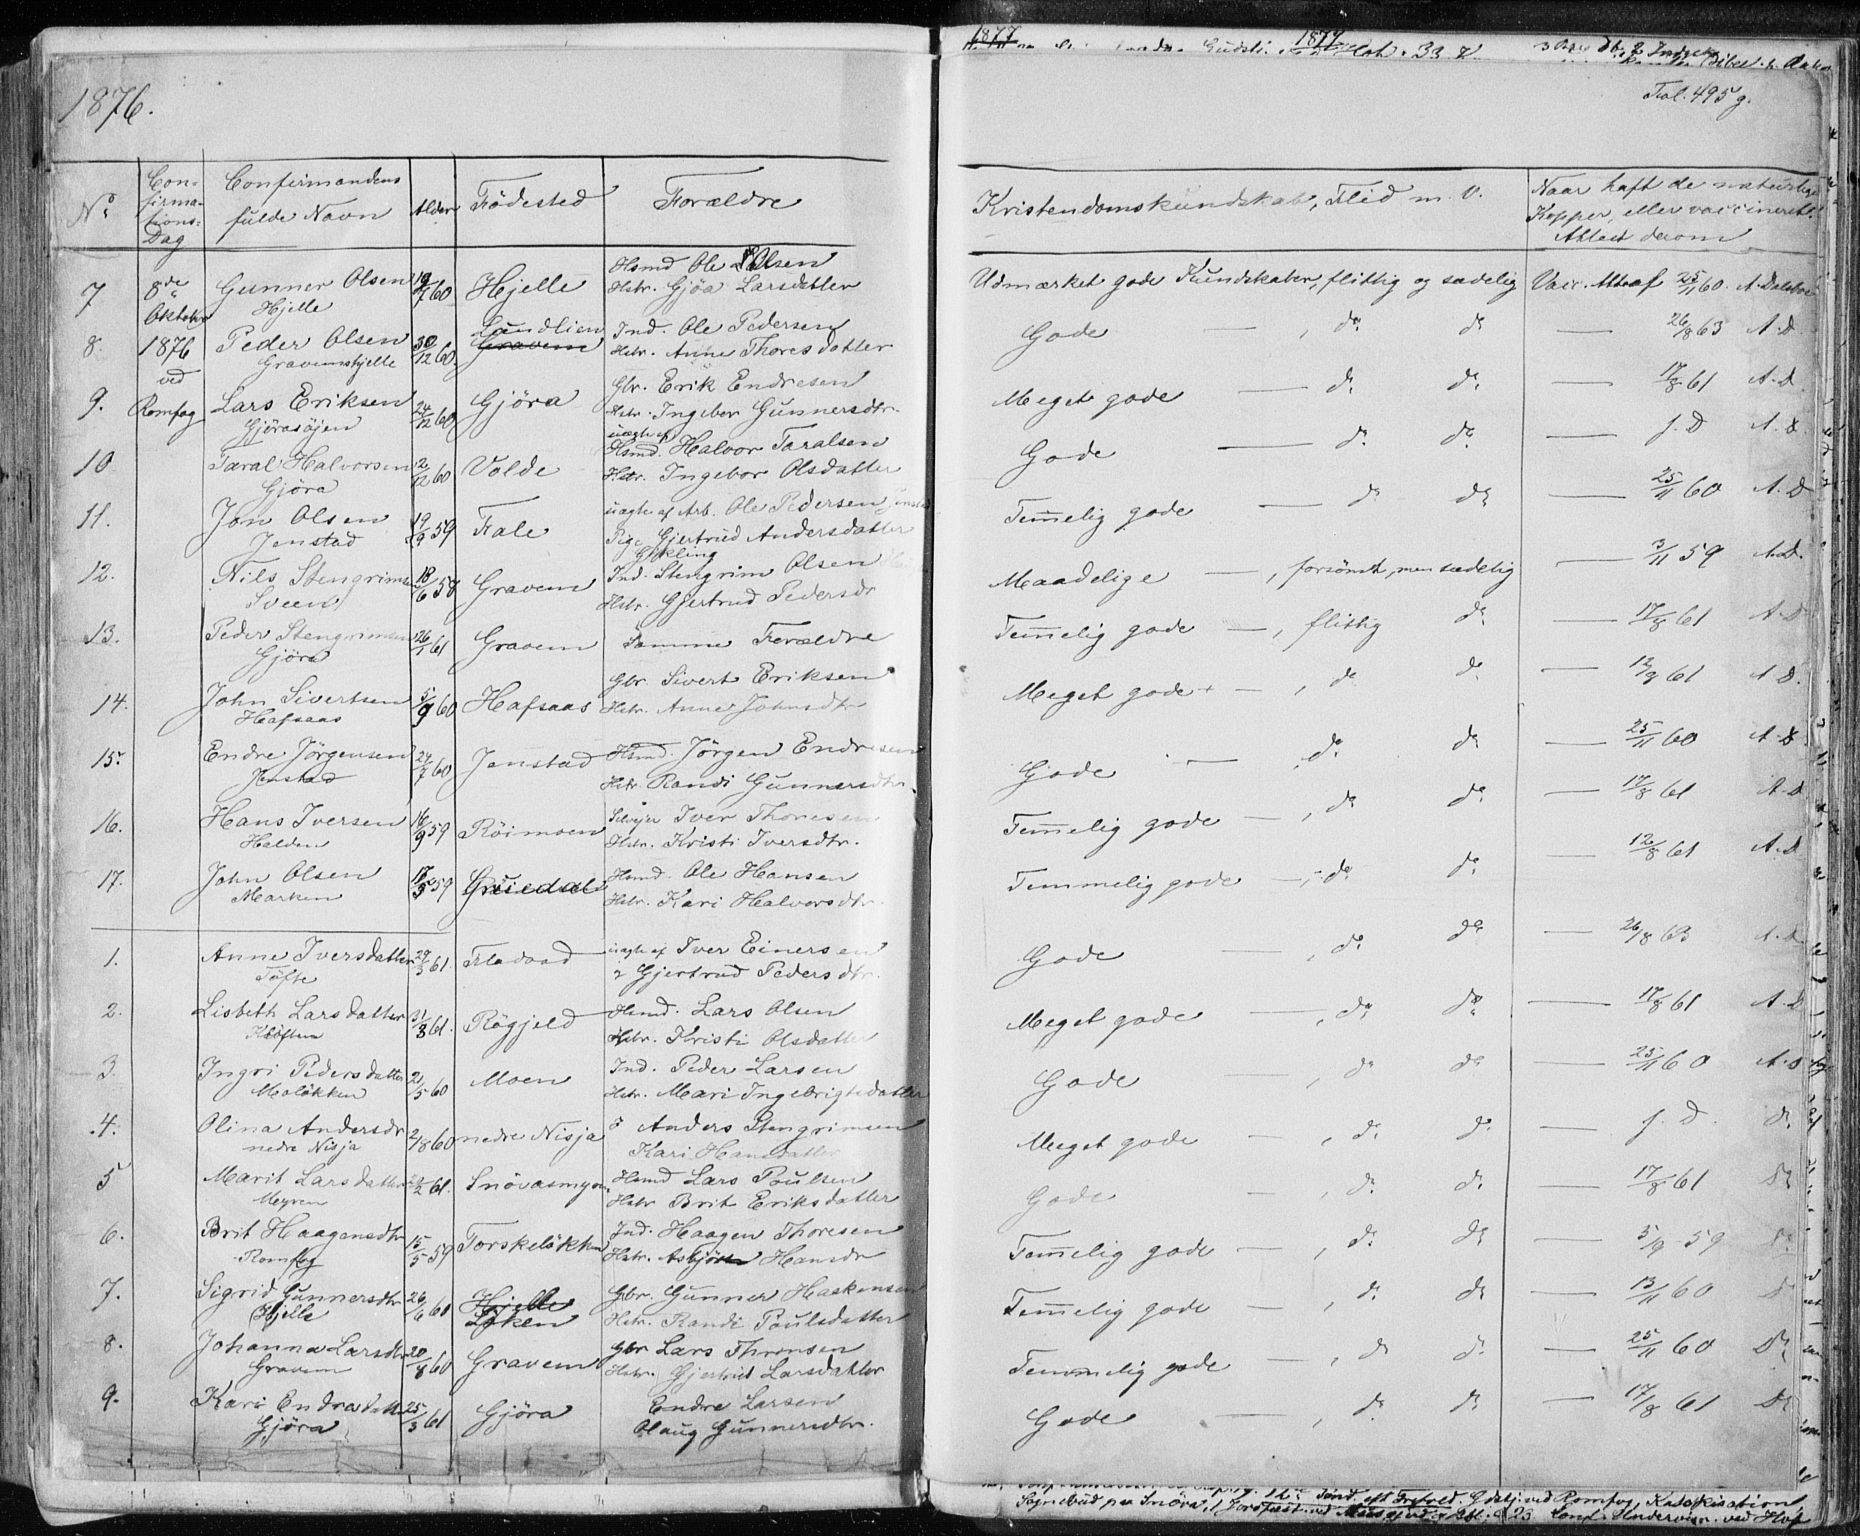 1876.
Fol. 495 g.
No.
Con-
firma-
tions-
Dag
Confirmandens
fulde Navn
Alder
Födested
Forældre
Kristendomskundskab, Flid m. V.
Naar haft de naturlige
Kopper, eller vaccineret.
Attest derom
7 8de Oktober Gunner Olsen Hjelle 60 Hjelle Hsmd Ole Olsen
Hstr. Gjöa Larsdatter
Udmærket gode Kundskaber, flittig og sædelig Vacc. Att. af 25/11 60. A. D
8. 1876 ved Peder Olsen Gravemshjelle 30/12 60. Lundlien Gravem Ind. Ole Pedersen
Hstr. Anne Thoresdatter
Gode — , do do — 26/8 63 A. D
9. Romfog Lars Eriksen Gjörasöjen 24/12 60 Gjöra Gbr. Erik Endresen
Hstr. Ingebor Gunnersdtr.
Meget gode — do do — 17/8 61 A. D.
10 Taral Halvorsen Gjöra 2/12 60 Volde uægte af Hsmd. Halvor Taralsen
Hstr. Ingebor Olsdatter
Gode — do do — f. D A. D.
11. Jon Olsen Jenstad 19/9 59 Fale uægte af Arb. Ole Pedersen Jenstad
Pige Gjertrud Andersdatter Gjikling
Temmelig gode — do do — 25/11 60 A. D
12. Nils Stengrimsen Sveen 18/6 58 Gravem Ind. Stengrim Olsen
Hstr. Gjertrud Pedersdr
Maadelige — , forsömt, men sædelig — 3/11 59 A. D.
13. Peder Stengrimsen Gjöra 26/1 61 Gravem Samme Forældre
Temmelig gode — , flittig do — 17/8 61 A. D
14. John Sivertsen Hafsaas 5/9 60 Hafsaas Gbr. Sivert Eriksen
Hstr. Anne Johnsdtr
Meget gode + — , do do — 12/9 61 A. D.
15. Endre Jörgensen Jenstad 24/7 60 Jenstad Hsmd Jörgen Endresen
Hstr. Randi Gunnersdtr.
Gode — do do — 25/11 60 A. D.
16. Hans Iversen Halden 16/9 59 Röimoen Iver Thoresen
Hstr. Kristi Iversdtr.
Temmelig gode — , do do — 17/8 61 A. D
17. John Olsen Marken 59 Grüedal Hsmd. Ole Hansen
Hstr. Kari Halvorsdtr.
Temmelig gode — , do do — 12/8 61 A. D
1. Anne Iversdatter Tofte 29/3 61. Fladvad uægte af Iver Einersen
Gjertrud Pedersdtr.
Gode — , do do — 26/8 63 A. D
2. Lisbeth Larsdatter Klöften 31/3 61. Röggjeld Hsmd. Lars Olsen
Hstr. Kristi Olsdatter
Meget gode — , do do — 17/8 61 A. D
3. Ingri Pedersdatter Molökken 2/5 60 Moen Ind. Peder Larsen
Hstr. Mari Ingebrigtsdatter
Gode — , do do — 25/11 60 A. D
4. Olina Andersdr nedre Nisja 2/8 60 nedre Nisja Anders Stengrimsen
Kari Hansdatter
Meget gode — , do do — f. D. do
5 Marit Larsdatter Meyren 61. Snövasmyren Hsmd Lars Poulsen
Hstr Brit Eriksdatter
Gode — , do do — 17/8 61 do
6. Brit Haagensdtr Romfog 15/5 59 Torskelökken Ind. Haagen Thoresen
Hstr. Asbjör Hansdr
Temmelig gode — , do do — 5/9 59 do
7. Sigrid Gunnersdtr Hjelle 26/6 60 Hjelle Löken Gbr. Gunner Haakensen
Hstr. Randi Poulsdatter
Temmelig gode — , do do — 13/11 60 do
8. Johanna Larsdtr Gravem 20/8 60 Gravem Gbr Lars Thronsen
Hstr. Gjertrud Larsdatter
Temmelig gode — , do do — 25/11 60 do
9. Kari Endresdatter Gjöra 25/3 61 Gjöra Endre Larsen
Olaug Gunnersdtr.
Gode — , do do — 17/8 61 do